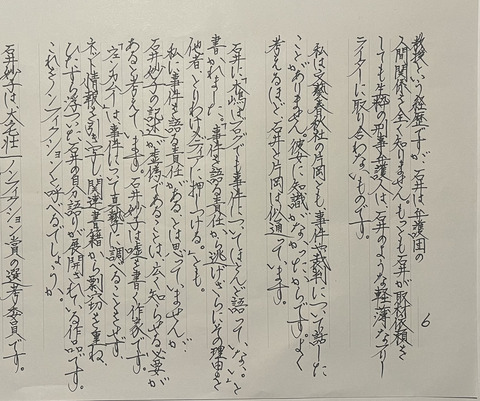 6
教授という経歴ですが、石井は弁護団の
人間関係を全く知りません。もっとも石井が取材依頼を
しても生粋の刑事弁護人は、石井のような軽薄なフリー
ライターに取り合わないものです。
私は文藝春秋社の片岡とも、事件や裁判について話した
ことがありません。彼女に知識がなかったからです。よく
考えるほど、石井と片岡は似通っています。
石井に「木嶋はブログでも事件についてほとんど語っていない」と
書かれました。「事件を語る責任から逃げ、さらにその理由を
他者、とりわけメディアに押しつける。」とも。
私に事件を語る責任があるとは思っていませんが、
石井妙子の記述が虚偽であることは広く知らせる必要が
あると考えています。石井妙子は嘘を書く作家です。
「ウェンカムイ」は事件について真摯に調べることをせず、
ネット情報を引き写し、関連書籍から剽窃を重ね、
ひたすら浮ついた石井の自分語りが展開されている作品です。
これをノンフィクションと呼べるでしょうか。
石井妙子は、大宅壮一ノンフィクション賞の選考委員です。